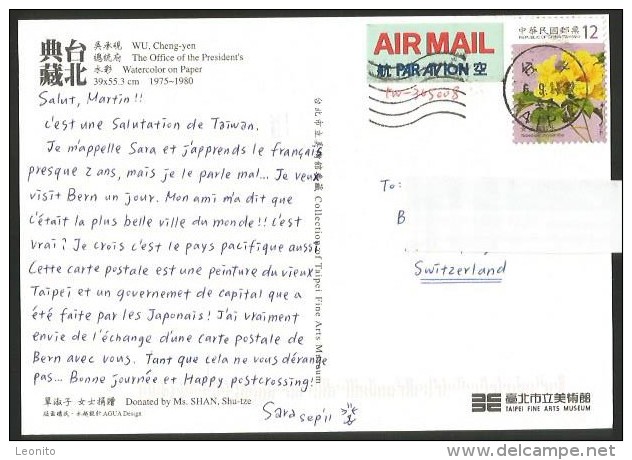 台北
典藏
吳承硯 WU, Cheng-yen
總統府 The Office of the President's
水彩 Watercolor on Paper
39x55.3 cm 1975~1980
Salut, Martin!!
C'est une Salutation de Taïwan.
Je m'appelle Sara et j'apprends le français
presque 2 ans, mais je le parle mal... Je veux
visit Bern un jour. Mon ami m'a dit que
c'était la plus belle ville du monde!! C'est
vrai? Je crois c'est le pays pacifique aussi
Cette carte postale est une peinture du vieux
Taipei et un governemet de capital que a
été faite par les Japonais! J'ai vraiment
envie de l'échange d'une carte postale de
Bern avec vous. Tant que cela ne vous dérange
pas... Bonne journée et Happy postcrossing!
Sara sep'11
單淑子 女士捐贈 Donated by Ms. SHAN, Shu-tze
AGUA Design
台北市立美術館典藏 Collection of Taipei Fine Arts Museum
AIR MAIL
航 PAR AVION 空
TW-305008
中華民國郵票 12
REPUBLIC OF CHINA (TAIWAN)
To:
B
Switzerland
臺北市立美術館
TAIPEI FINE ARTS MUSEUM
delcampe.net